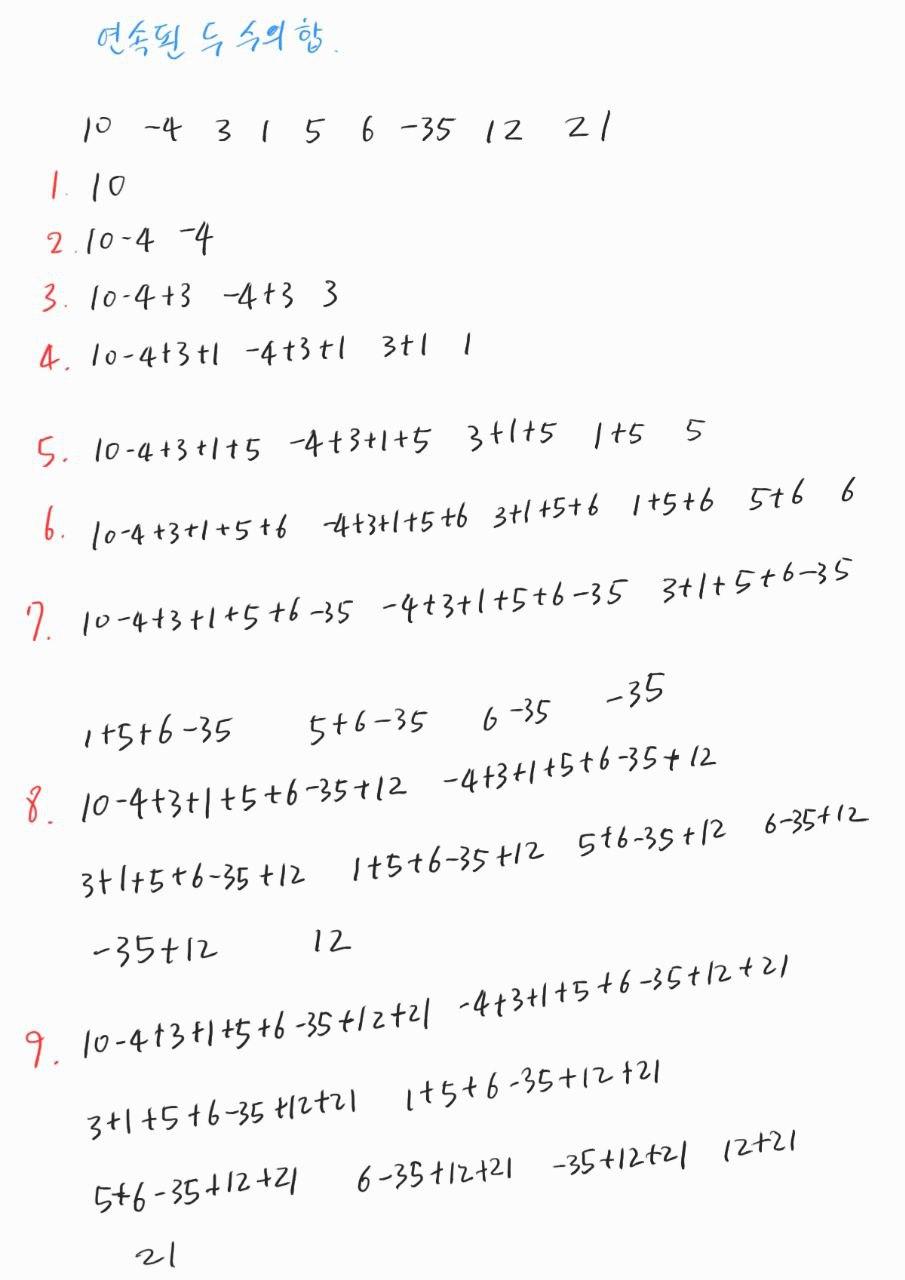 연속된 두 수의 합.
10 -4 3 1 5 6 -35 12 21
1. 10
2. 10-4 -4
3. 10-4+3 -4+3 3
4. 10-4+3+1 -4+3+1 3+1 1
5. 10-4+3+1+5 -4+3+1+5 3+1+5 1+5 5
6. 10-4+3+1+5+6 -4+3+1+5+6 3+1+5+6 1+5+6 5+6 6
7. 10-4+3+1+5+6-35 -4+3+1+5+6-35 3+1+5+6-35
1+5+6-35 5+6-35 6-35 -35
8. 10-4+3+1+5+6-35+12 -4+3+1+5+6-35+12
3+1+5+6-35+12 1+5+6-35+12 5+6-35+12 6-35+12
-35+12 12
9. 10-4+3+1+5+6-35+12+21 -4+3+1+5+6-35+12+21
3+1+5+6-35+12+21 1+5+6-35+12+21
5+6-35+12+21 6-35+12+21 -35+12+21 12+21
21